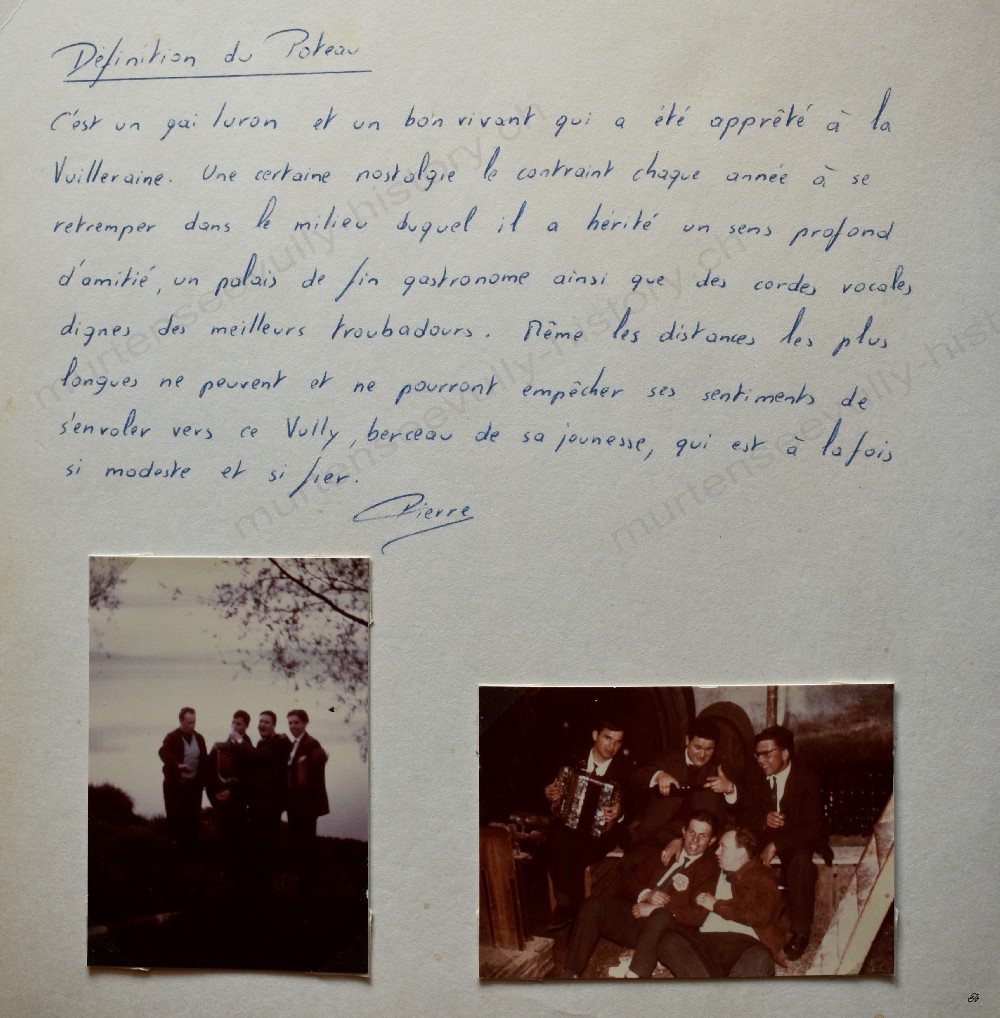 Définition du Poteau
C'est un gai luron et un bon vivant qui a été apprêté à la
Vuilleraine. Une certaine nostalgie le contraint chaque année à se
retremper dans le milieu duquel il a hérité un sens profond
d'amitié, un palais de fin gastronome ainsi que des cordes vocales
dignes des meilleurs troubadours. Même les distances les plus
longues ne peuvent et ne pourront empêcher ses sentiments de
s'envoler vers ce Vully, berceau de sa jeunesse, qui est à la fois
si modeste et si fier.
Pierre
murtenseevully-history.ch
murtenseevully-history.ch
murtenseevully-hist